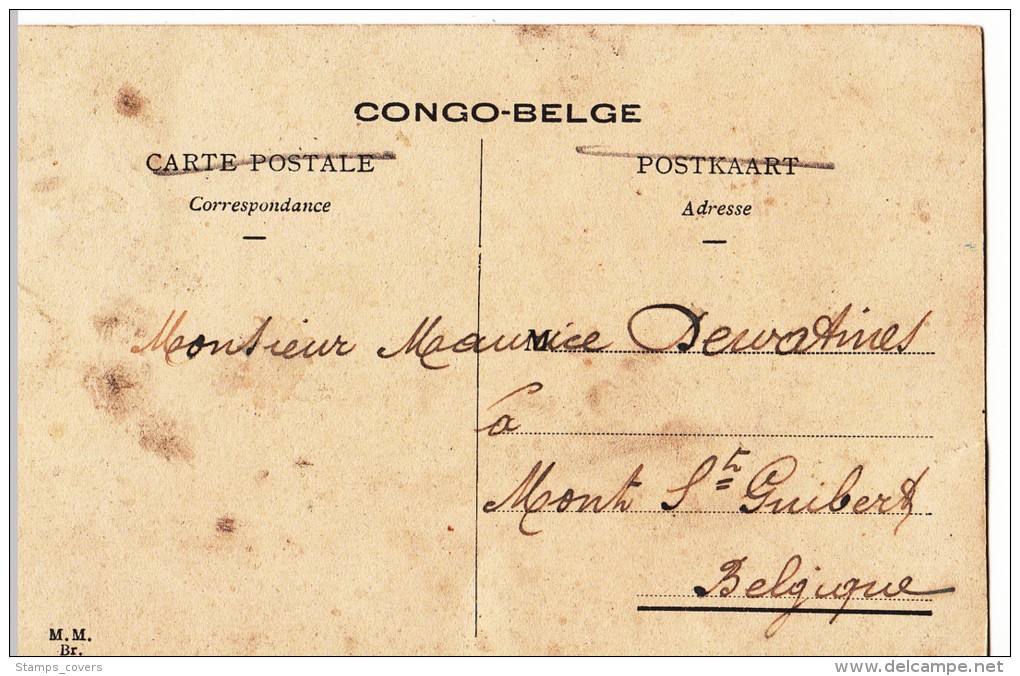 CONGO-BELGE
CARTE POSTALE
Correspondance
POSTKAART
Adresse
M
Monsieur Maurice Dewatines
à
Mont St Guibert
Belgique
M.M.
Br.
Stamps_covers
www.delcampe.net